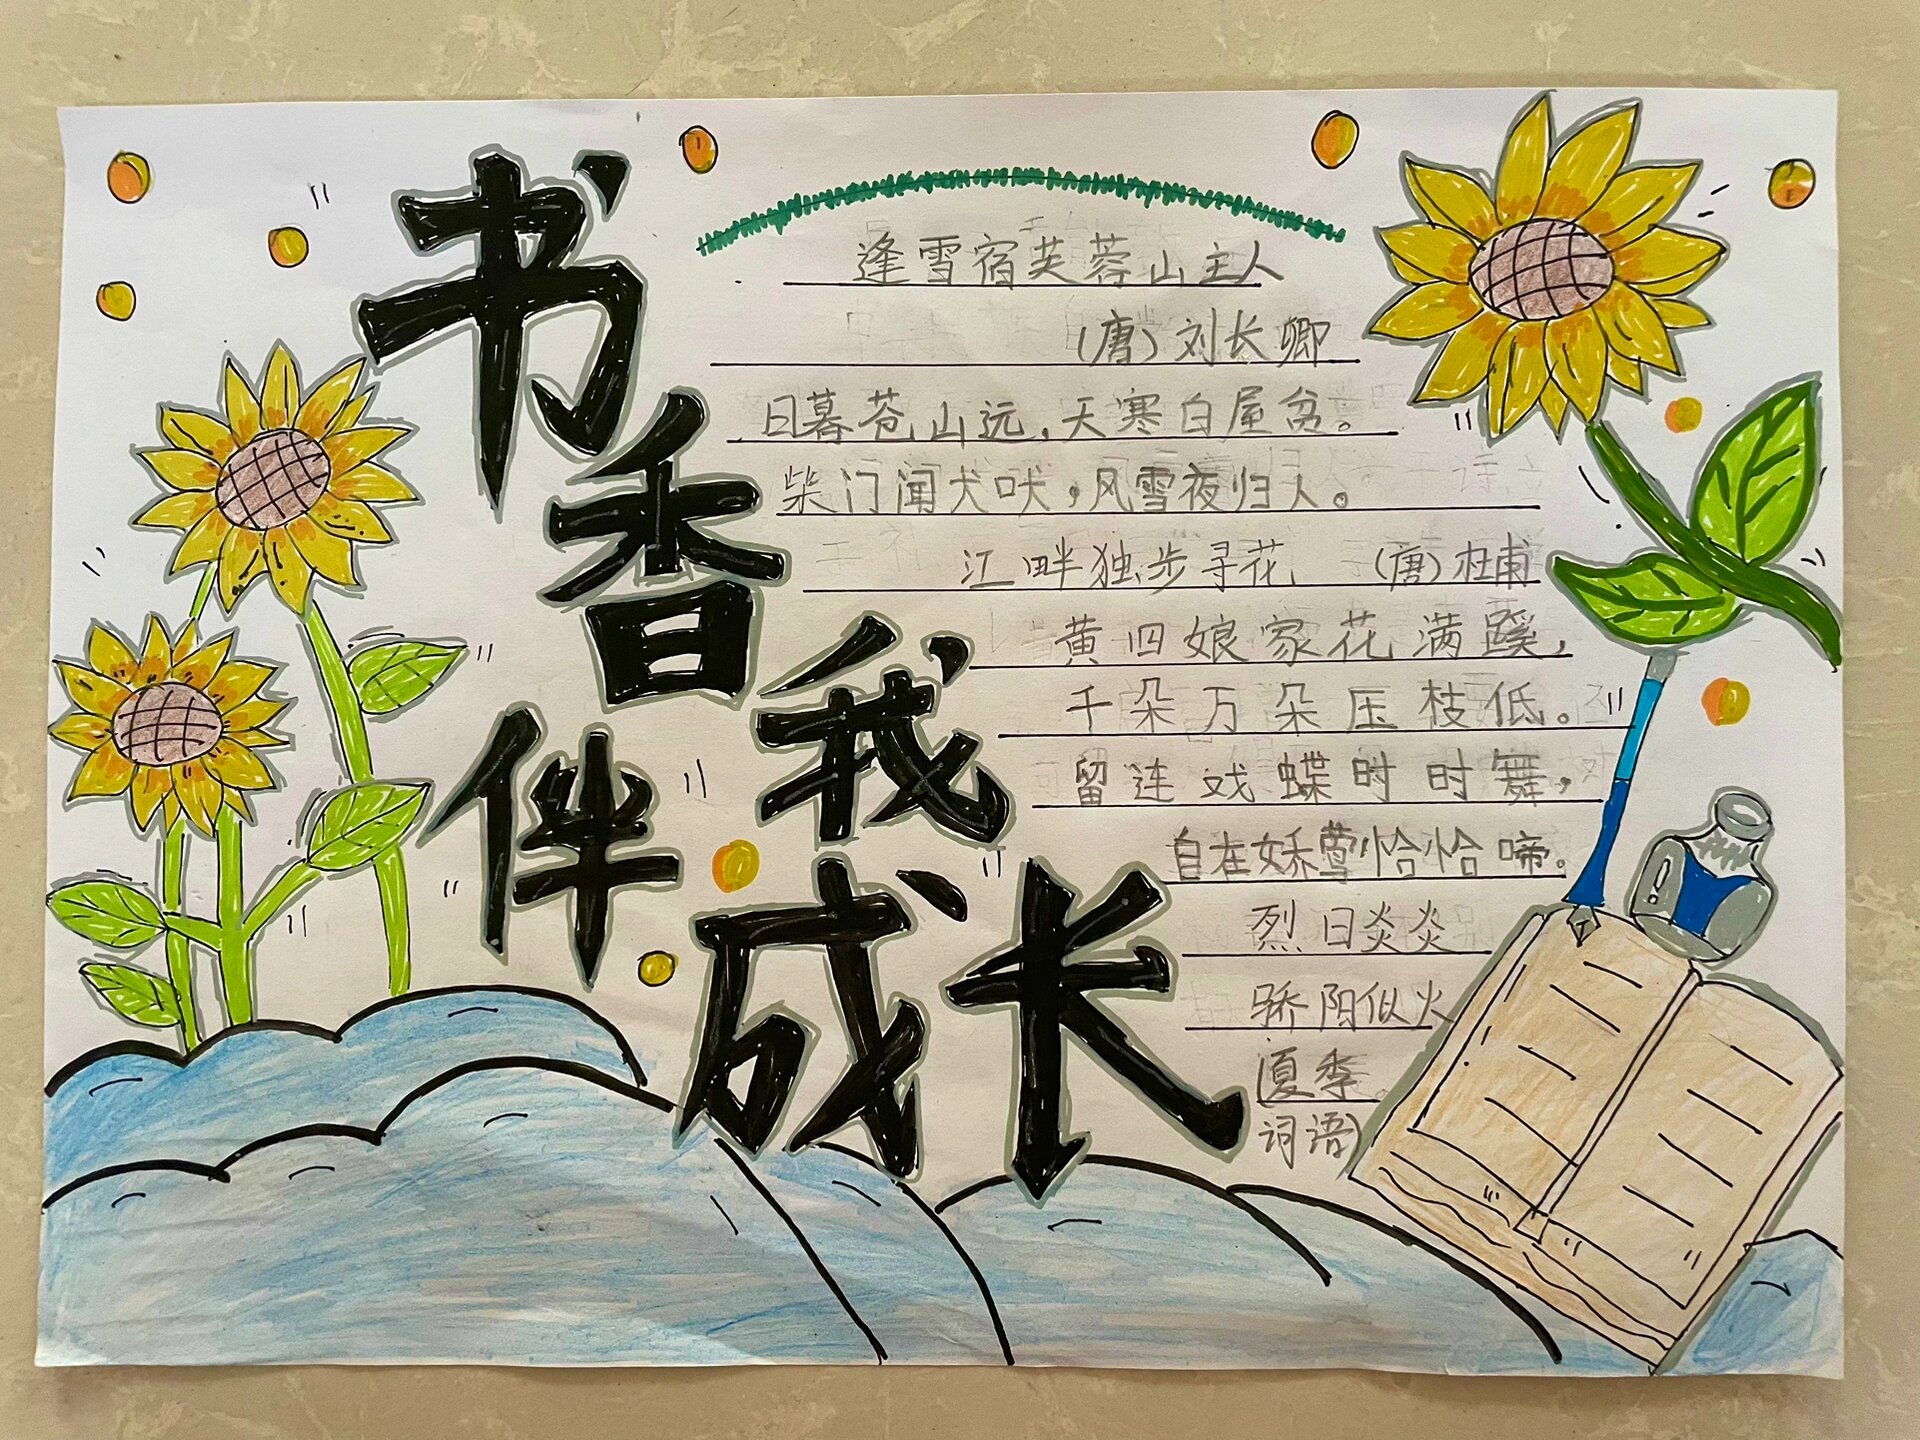 书香伴我成长
逢雪宿芙蓉山主人
(唐)刘长卿
日暮苍山远,天寒白屋贫。
柴门闻犬吠,风雪夜归人。
江畔独步寻花 (唐)杜甫
黄四娘家花满蹊,
千朵万朵压枝低。
留连戏蝶时时舞,
自在娇莺恰恰啼。
烈日炎炎
骄阳似火
(夏季
词语)